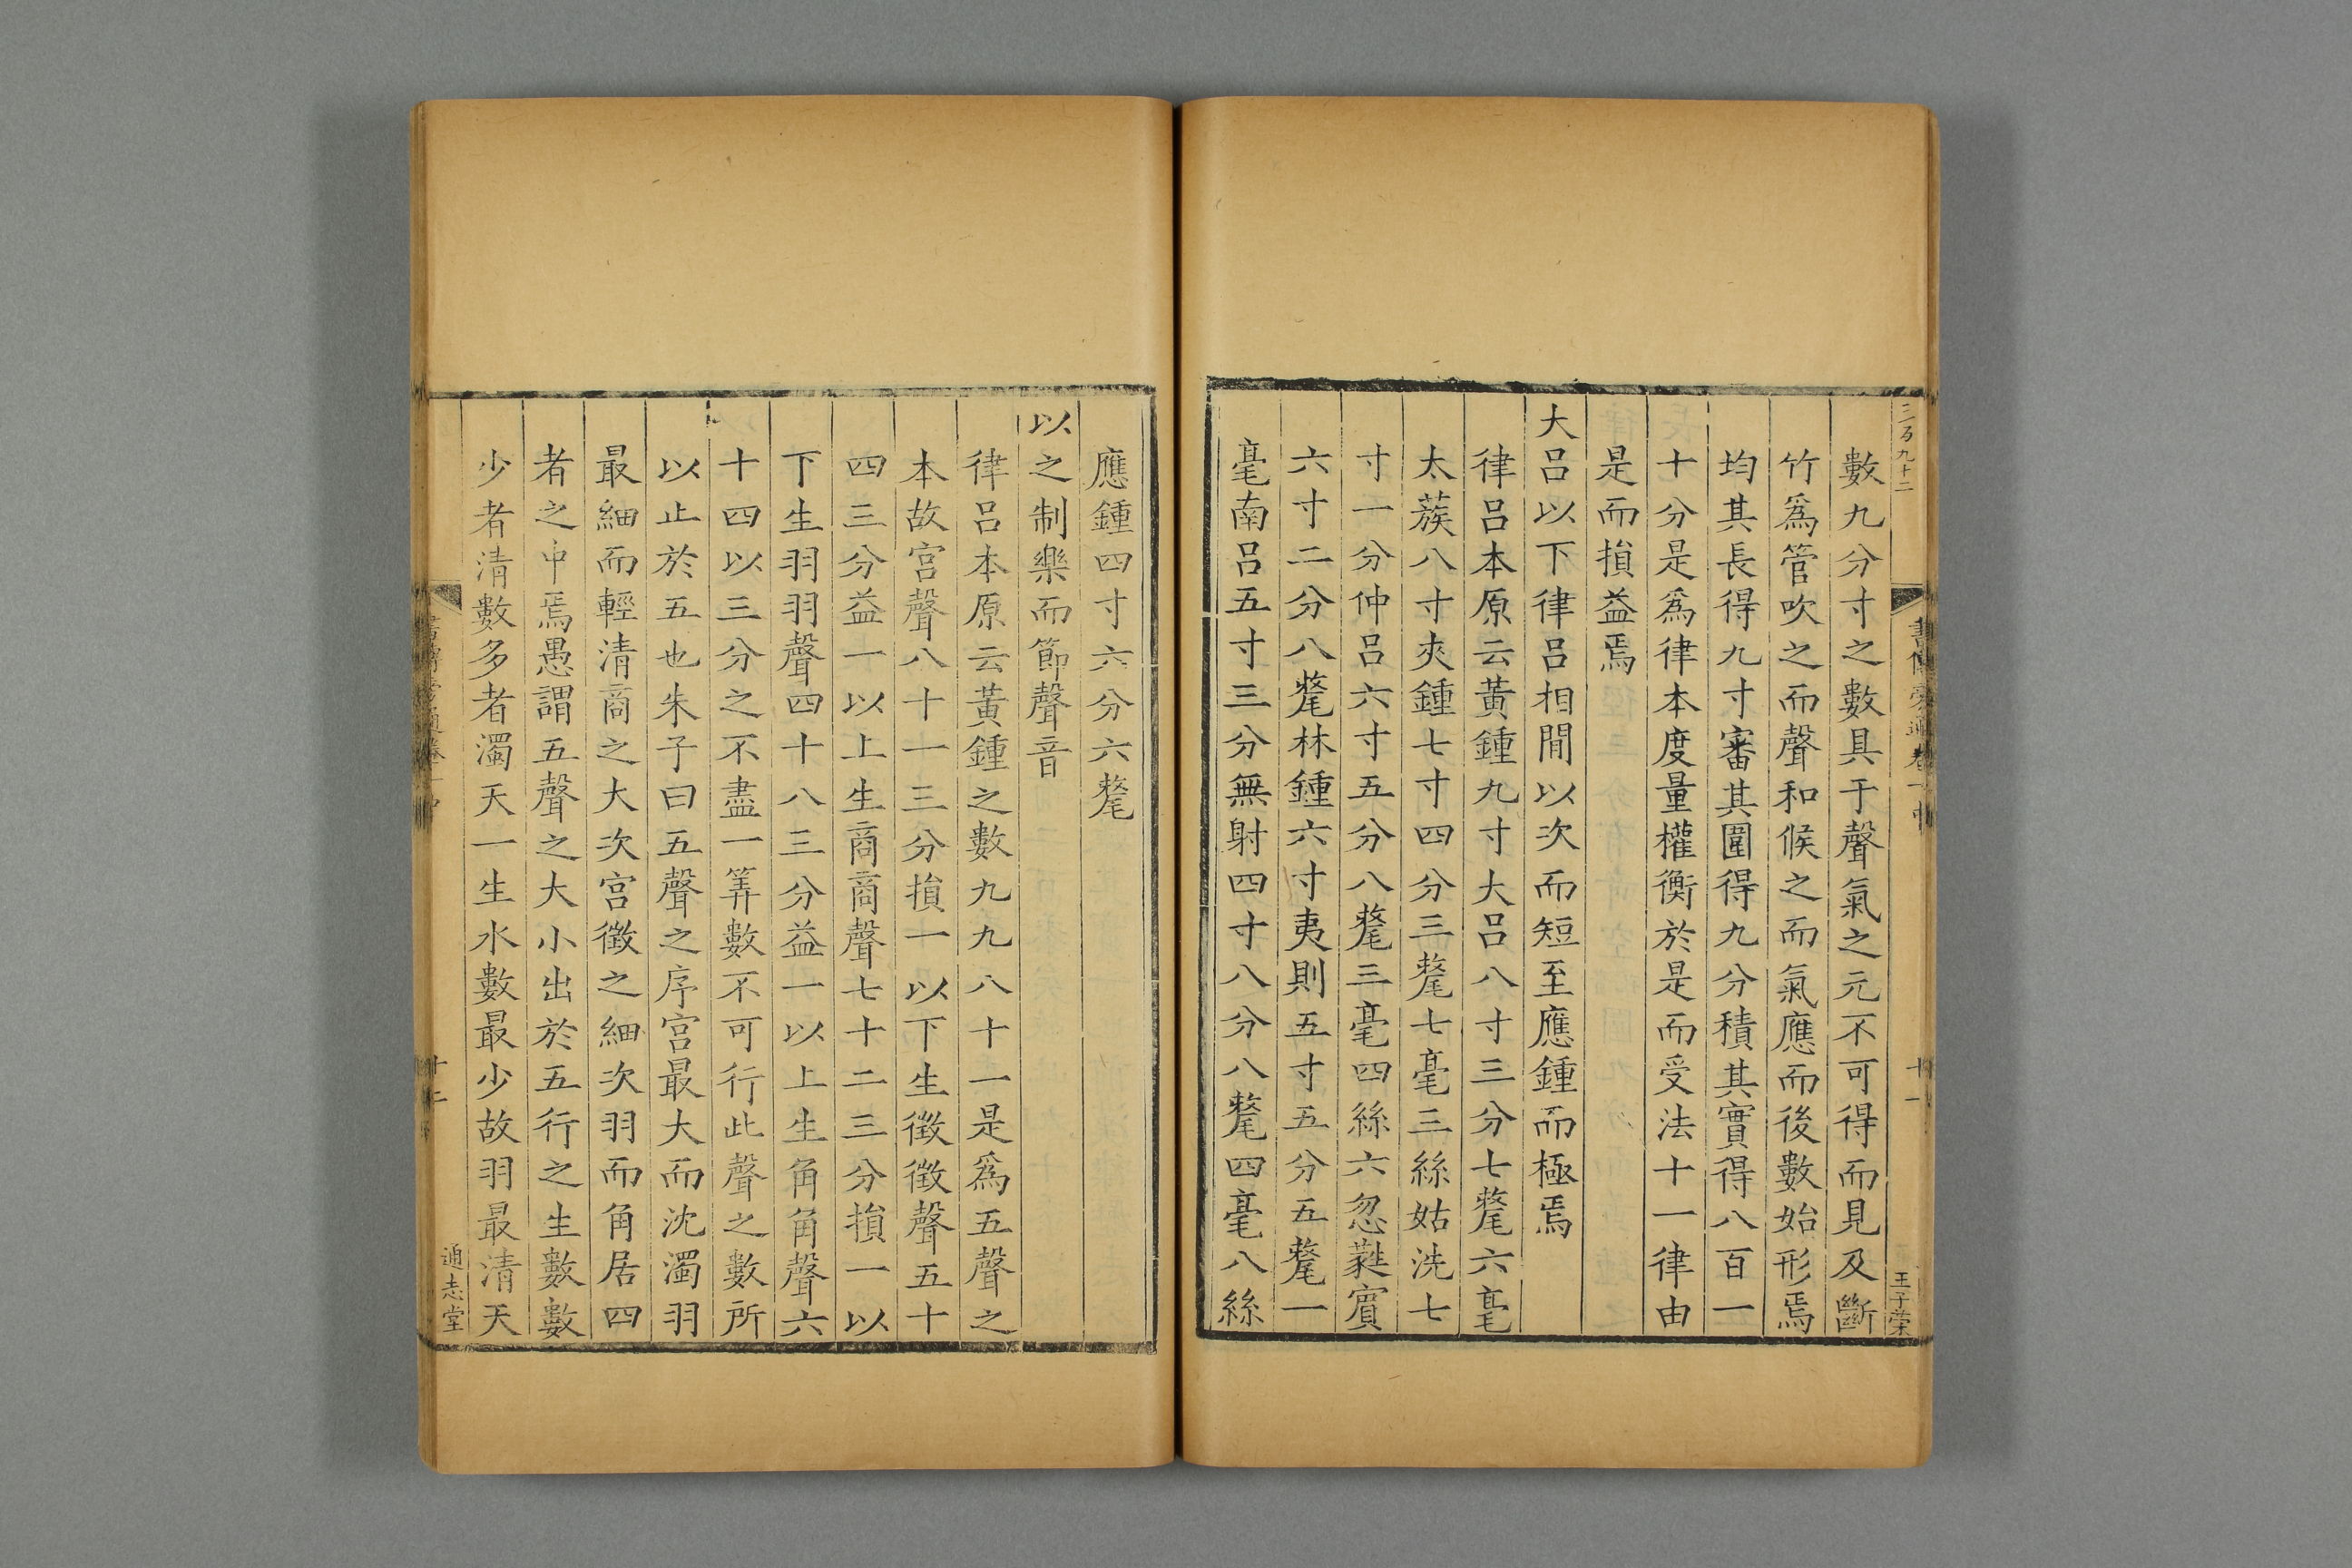 三百九十二
書傳旁通卷一中
十一
王子榮
數九分寸之數具于聲氣之元不可得而見及斷
竹爲管吹之而聲和候之而氣應而後數始形焉
均其長得九寸審其圍得九分積其實得八百一
十分是爲律本度量權衡於是而受法十一律由
是而損益焉
大呂以下律呂相閒以次而短至應鍾而極焉
律呂本原云黃鍾九寸大呂八寸三分七氂六毫
太蔟八寸夾鍾七寸四分三氂七毫三絲姑洗七
寸一分仲呂六寸五分八氂三毫四絲六忽蕤賓
六寸二分八氂林鍾六寸夷則五寸五分五氂一
毫南呂五寸三分無射四寸八分八氂四毫八絲
應鍾四寸六分六氂
以之制樂而節聲音
律呂本原云黃鍾之數九九八十一是爲五聲之
本故宮聲八十一三分損一以下生徵徵聲五十
四三分益一以上生商商聲七十二三分損一以
下生羽羽聲四十八三分益一以上生角角聲六
十四以三分之不盡一筭數不可行此聲之數所
以止於五也朱子曰五聲之序宮最大而沈濁羽
最細而輕清商之大次宮徵之細次羽而角居四
者之中焉愚謂五聲之大小出於五行之生數數
少者清數多者濁天一生水數最少故羽最清天
十二
通志堂